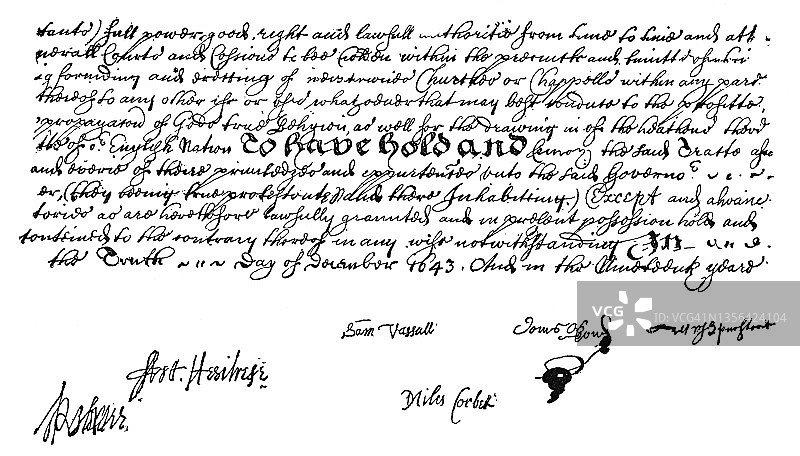 tants) full power, good, right and lawfull authoritie from time to time and att
nerall Courts and to bee holden within the precincts and limitts
g forending and erecting of Churches or Chappells within any parte
thereof to any other use or uses whatsoever that may best conduce to the proffitte
propagation of Gods true Religion as well for the drawing in of the heathens there
tte of oʳ English Nation To have hold and Injoy the said Tratte
and everie of theire priviledges and appurtences unto the said Governoʳ
er, (they beeing true protestants) and there Inhabiting.) Except and
tories as are heretofore lawfully graunted and in present possession held
conteined to the contrary thereof in any wise notwithstanding In
the Tenth Day of December 1643. And in the Nineteenth yeare
Sam Vassall
Art. Hesilrige
Miles Corbet
VCG
VCG.COM
ID: VCG41N1356424104